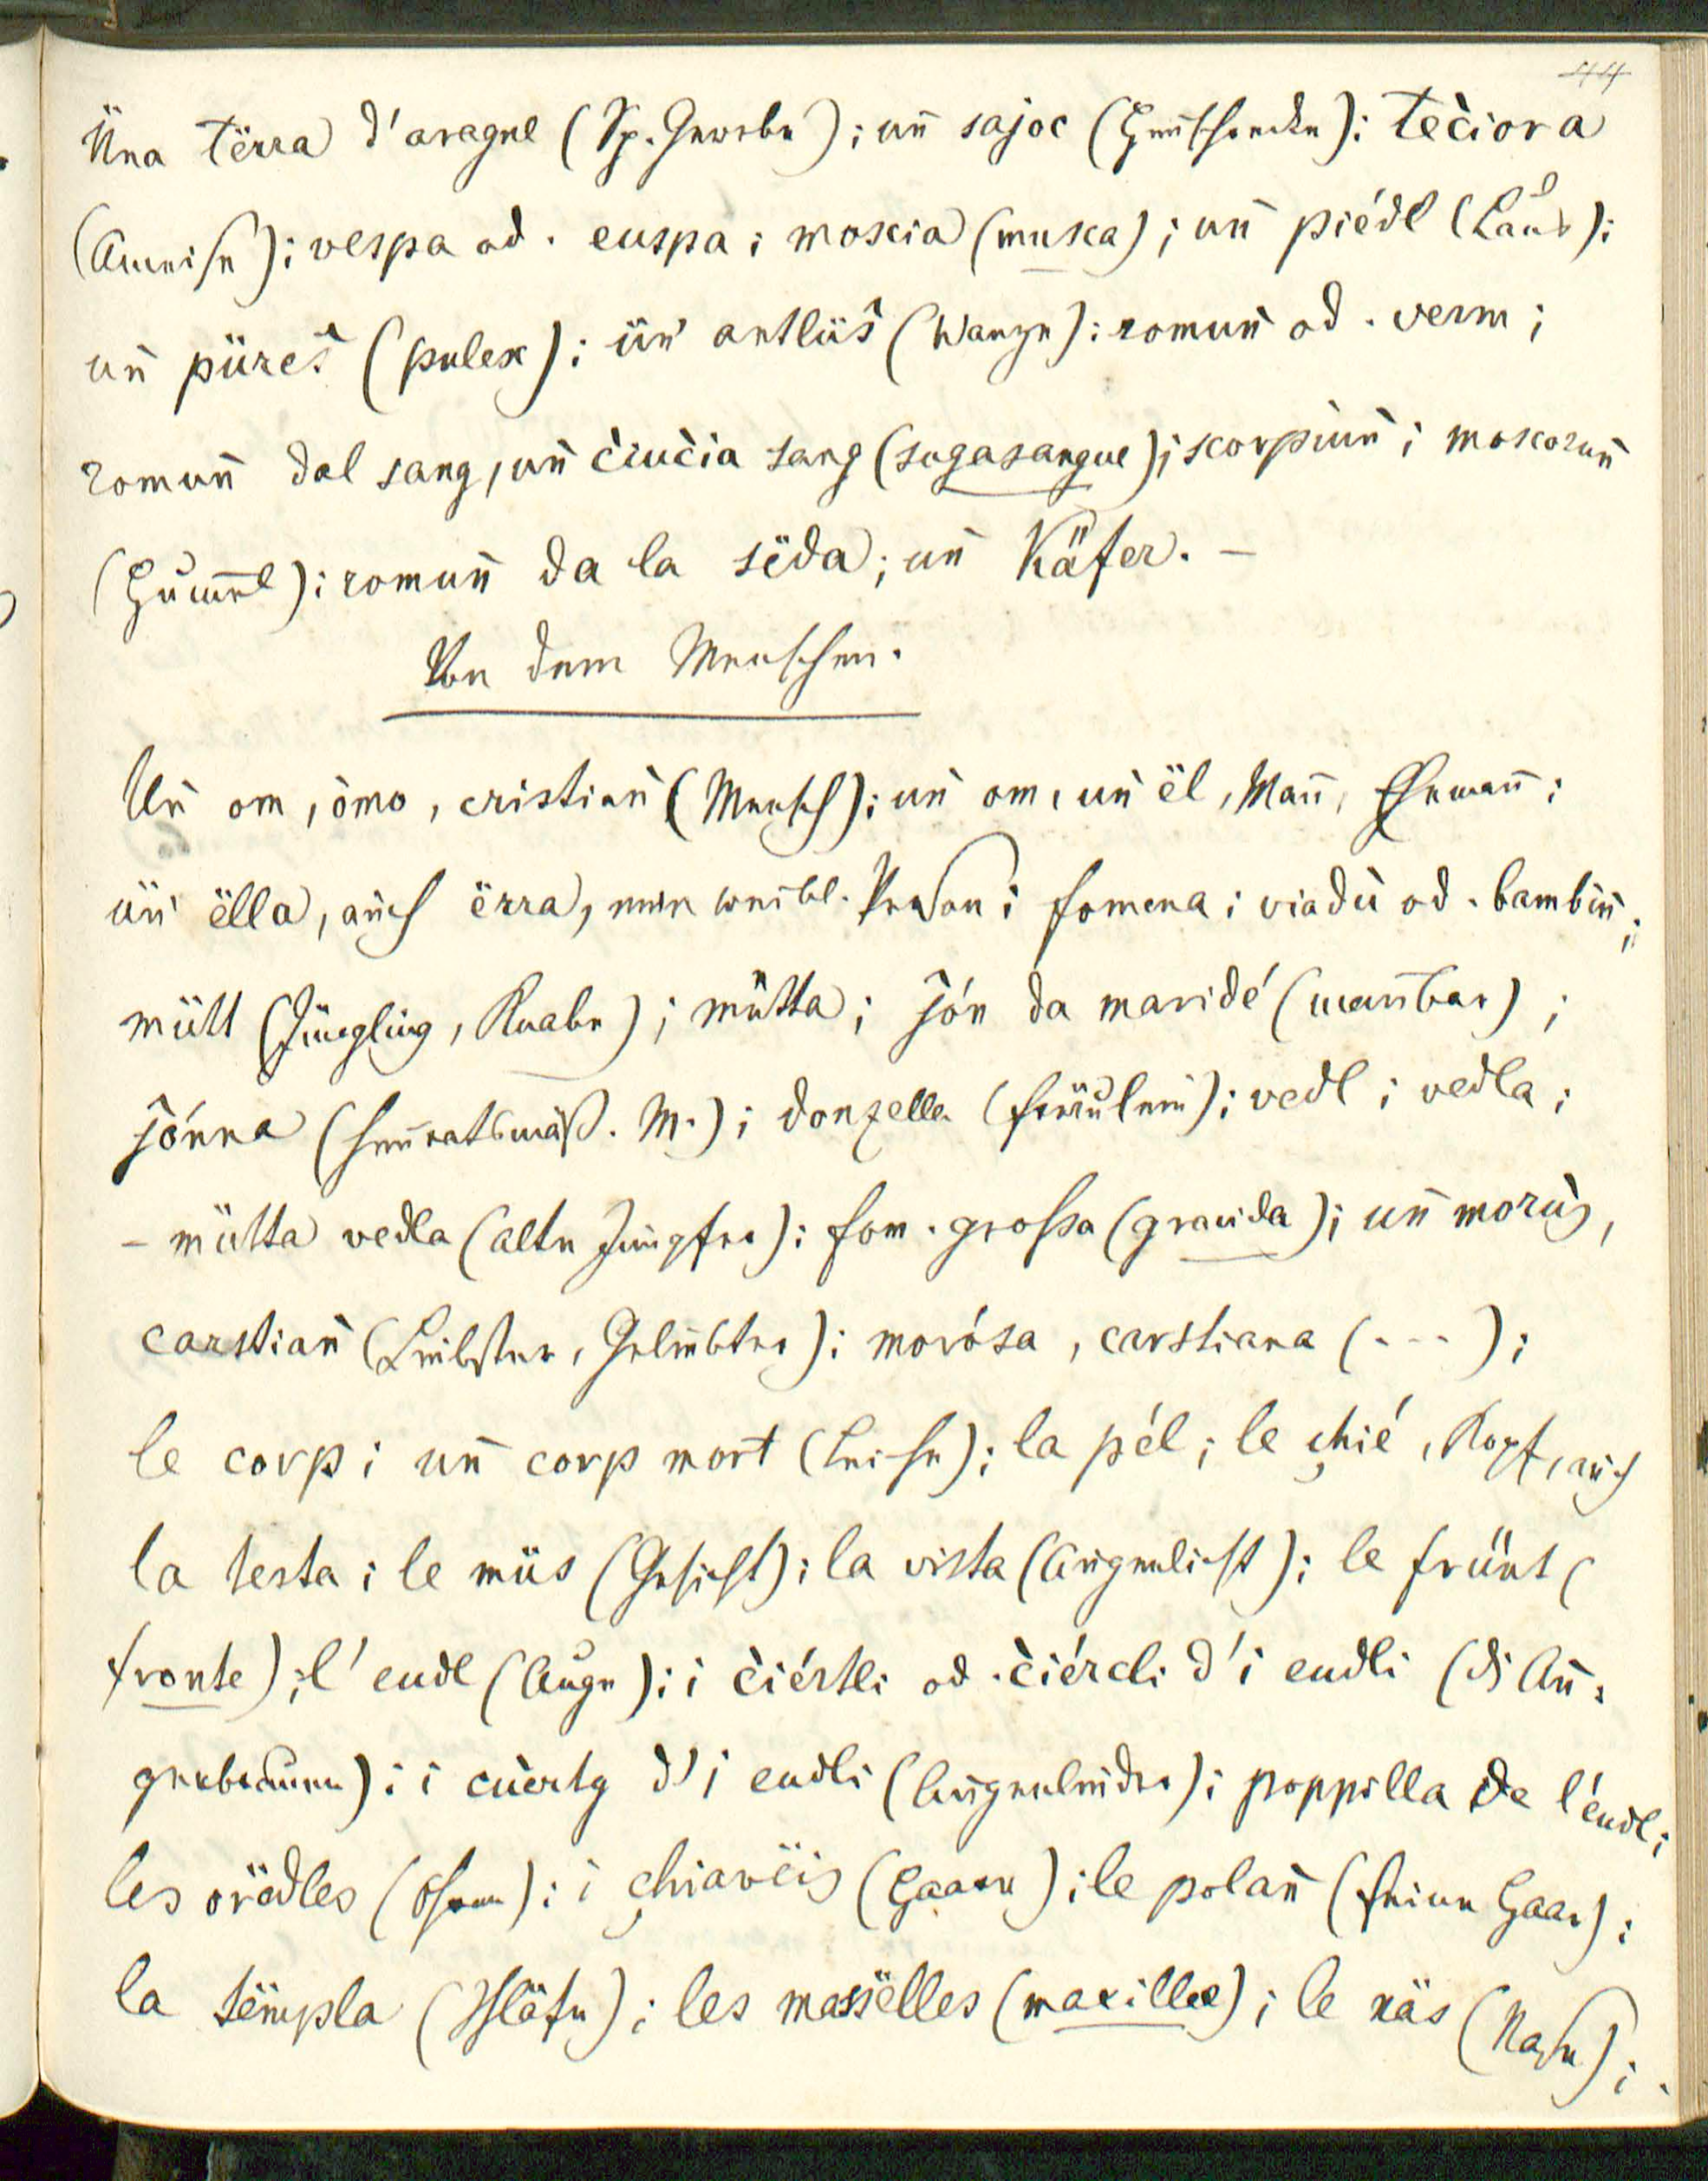 44
Üna tërra d'aragne (Sp. Gewebe); un̄ sajoc (Heuschrecke); tec̀iora
(Ameise); vespa od. euspa; moscia (musca); un̄ piédl (Laus);
un̄ püres̀ (pulex); ün' antlüs̀ (Wanze); romun̄ od. verm;
romun̄ dal sang, un̄ c̀iuc̀ia sang (sugasangue); scorpiun̄; moscorun̄
(Hummel); romun̄ da la sëda; un̄ Käfer. –
Von dem Menschen.
Un̄ om, òmo, cristian̄ (Mensch); un̄ om, un̄ ël, Man̄, Eheman̄;
ün' ëlla, auch ërra, eine weibl. Person; fomena; viadù od. bambin̄;
mütt (Jüngling, Knabe); mütta; jón da maridé (man̄bar);
jónna (heurathsmäß. M.); donzella (Fräulein); vedl; vedla;
– mütta vedla (alte Jungfer); fom. grossa (gravida); un̄ morùs,
carstian̄ (Liebster, Geliebter); morósa, carstiana (---);
le corp; un̄ corp mort (Leiche); la pél; le chié, Kopf, auch
la testa; le müs (Gesicht); la vista (Augenlicht); le frünt (
fronte); l'eudl (Auge); i c̀iértli od. c̀iércli d'i eudli (di Au=
genbraunen); i cùertg d'i eudli (Augenlieder); poppilla de l'eudl;
les orädles (Ohren); i chiavëis (Haare); le polan̄ (feine Haar);
la tëmpla (Schläfe); les massëlles (maxillae); le näs (Nase);